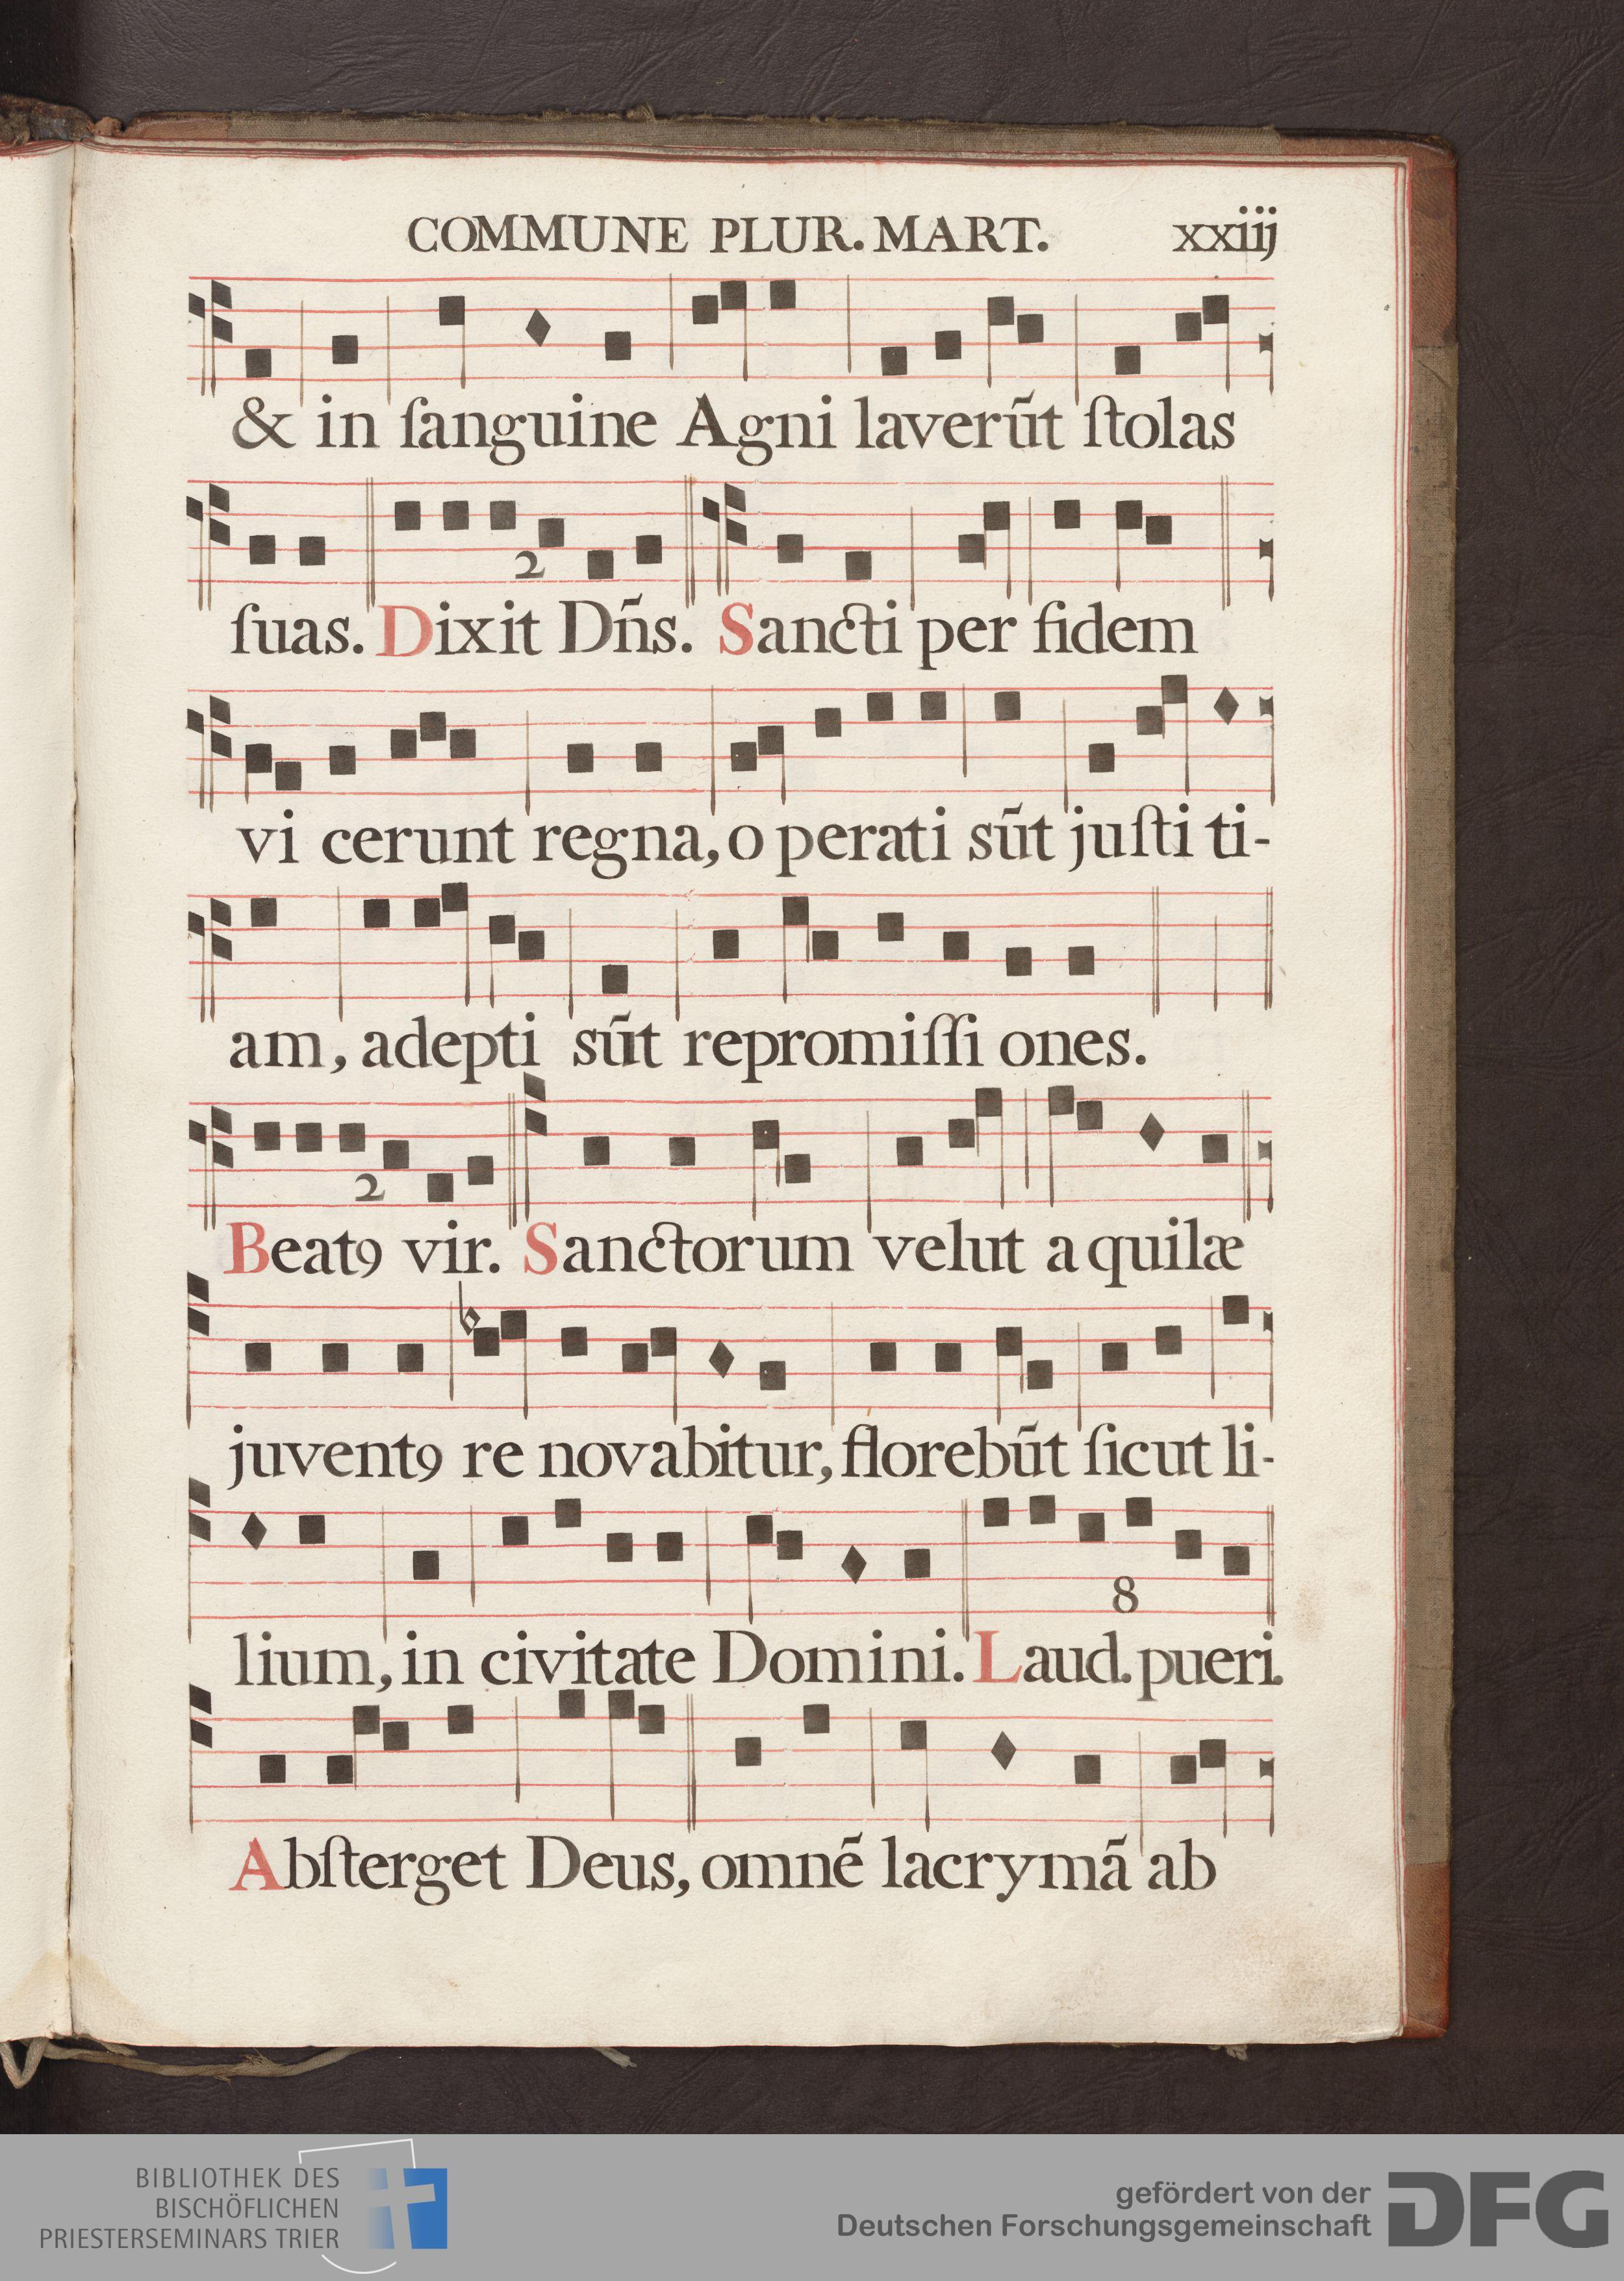 COMMUNE PLUR. MART. xxiij
& in ſanguine Agni laverũt ſtolas
2
ſuas. Dixit Dñs. Sancti per fidem
vi cerunt regna, o perati sũt juſti ti-
am, adepti sũt repromiſſi ones.
2
Beatꝯ vir. Sanctorum velut a quilæ
juventꝯ re novabitur, florebũt ſicut li-
8
lium, in civitate Domini. Laud. pueri.
Abſterget Deus, omnẽ lacrymã ab
BIBLIOTHEK DES
BISCHÖFLICHEN
PRIESTERSEMINARS TRIER
gefördert von der
Deutschen Forschungsgemeinschaft
DFG